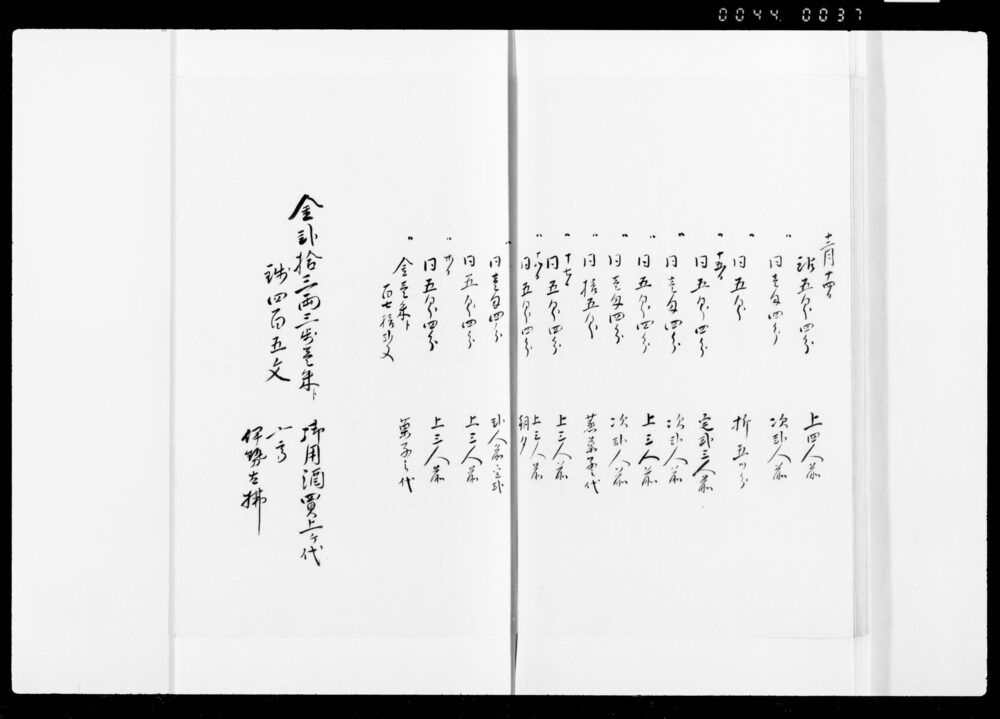 0044.0037
十二月十四日
五分四分 上四人前
〃 同壱匁四分 次弐人前
〃 同五分 折五ツ分
十五日
〃 同五分四分 弐三人前
〃 同壱匁四分 次弐人前
〃 同五分四分 上三人前
〃 同壱匁四分 次弐人前
〃 同拾五分 蒸菓子代
十七日
〃 同五分四分 上三人前
〃 同五分四分 上三人前 朝夕
〃 同壱匁四分 弐人前
同五分四分 上三人前
〃 同五分四分 上三人前
〃 金壱朱ト 菓子之代
百七拾弐文
金弐拾三両三歩壱朱ト 御用酒買上ケ代
銭四百五文
伊勢吉拂